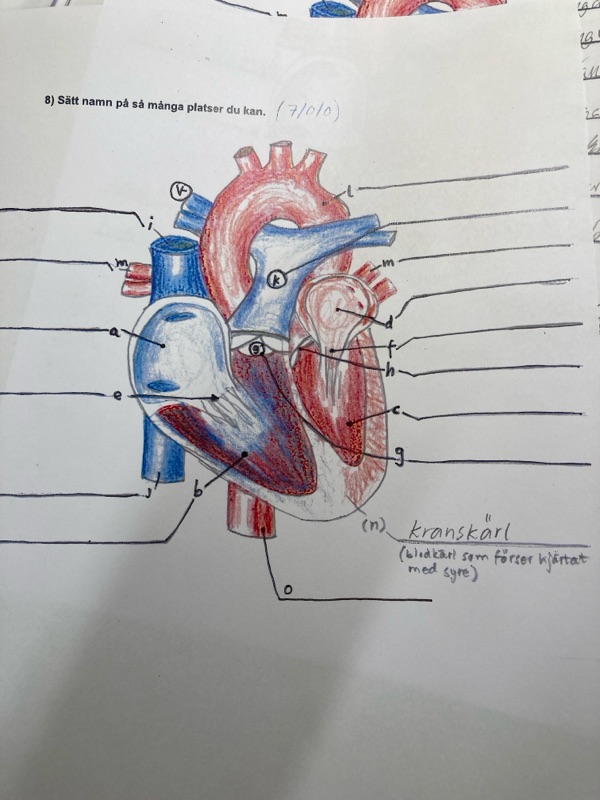 8) Sätt namn på så många platser du kan. (7/0/0)
V
l
i
m
k
m
d
a
f
g
h
e
c
g
j
b
(n) kranskärl
(blodkärl som förser hjärtat
med syre)
o